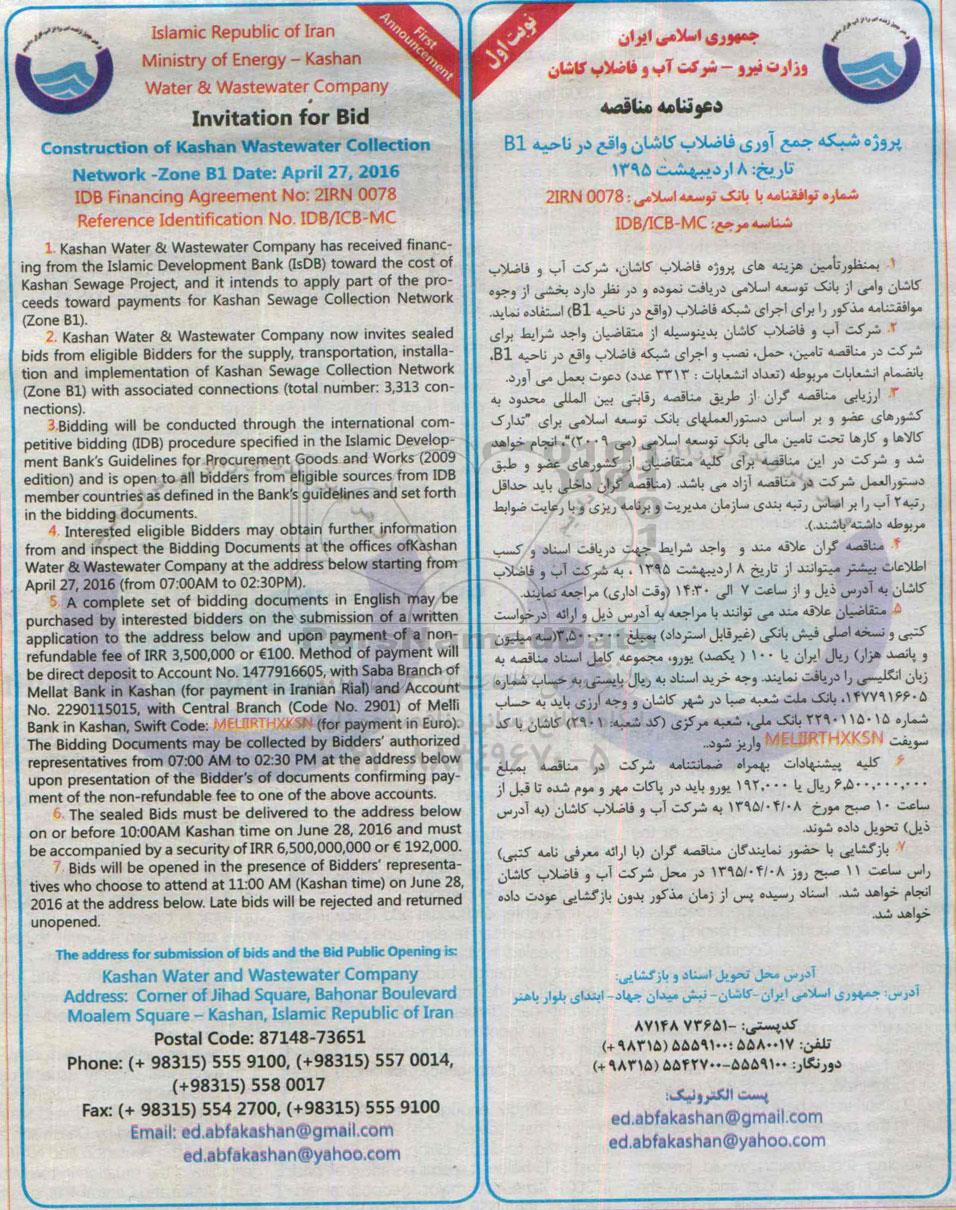 First
Announcement
Islamic Republic of Iran
Ministry of Energy – Kashan
Water & Wastewater Company
Invitation for Bid
Construction of Kashan Wastewater Collection
Network -Zone B1 Date: April 27, 2016
IDB Financing Agreement No: 2IRN 0078
Reference Identification No. IDB/ICB-MC
1. Kashan Water & Wastewater Company has received financ-
ing from the Islamic Development Bank (IsDB) toward the cost of
Kashan Sewage Project, and it intends to apply part of the pro-
ceeds toward payments for Kashan Sewage Collection Network
(Zone B1).
2. Kashan Water & Wastewater Company now invites sealed
bids from eligible Bidders for the supply, transportation, installa-
tion and implementation of Kashan Sewage Collection Network
(Zone B1) with associated connections (total number: 3,313 con-
nections).
3.Bidding will be conducted through the international com-
petitive bidding (IDB) procedure specified in the Islamic Develop-
ment Bank's Guidelines for Procurement Goods and Works (2009
edition) and is open to all bidders from eligible sources from IDB
member countries as defined in the Bank's guidelines and set forth
in the bidding documents.
4. Interested eligible Bidders may obtain further information
from and inspect the Bidding Documents at the offices ofKashan
Water & Wastewater Company at the address below starting from
April 27, 2016 (from 07:00AM to 02:30PM).
5. A complete set of bidding documents in English may be
purchased by interested bidders on the submission of a written
application to the address below and upon payment of a non-
refundable fee of IRR 3,500,000 or €100. Method of payment will
be direct deposit to Account No. 1477916605, with Saba Branch of
Mellat Bank in Kashan (for payment in Iranian Rial) and Account
No. 2290115015, with Central Branch (Code No. 2901) of Melli
Bank in Kashan, Swift Code: MELIIRTHXKSN (for payment in Euro).
The Bidding Documents may be collected by Bidders' authorized
representatives from 07:00 AM to 02:30 PM at the address below
upon presentation of the Bidder's of documents confirming pay-
ment of the non-refundable fee to one of the above accounts.
6. The sealed Bids must be delivered to the address below
on or before 10:00AM Kashan time on June 28, 2016 and must
be accompanied by a security of IRR 6,500,000,000 or € 192,000.
7. Bids will be opened in the presence of Bidders' representa-
tives who choose to attend at 11:00 AM (Kashan time) on June 28,
2016 at the address below. Late bids will be rejected and returned
unopened.
The address for submission of bids and the Bid Public Opening is:
Kashan Water and Wastewater Company
Address: Corner of Jihad Square, Bahonar Boulevard
Moalem Square – Kashan, Islamic Republic of Iran
Postal Code: 87148-73651
Phone: (+ 98315) 555 9100, (+98315) 557 0014,
(+98315) 558 0017
Fax: (+ 98315) 554 2700, (+98315) 555 9100
Email: ed.abfakashan@gmail.com
ed.abfakashan@yahoo.com
نوبت اول
جمهوری اسلامی ایران
وزارت نیرو – شرکت آب و فاضلاب کاشان
دعوتنامه مناقصه
پروژه شبکه جمع آوری فاضلاب کاشان واقع در ناحیه B1
تاریخ: ۸ اردیبهشت ۱۳۹۵
شماره توافقنامه با بانک توسعه اسلامی: 2IRN 0078
شناسه مرجع: IDB/ICB-MC
۱. بمنظورتأمین هزینه های پروژه فاضلاب کاشان، شرکت آب و فاضلاب
کاشان وامی از بانک توسعه اسلامی دریافت نموده و در نظر دارد بخشی از وجوه
موافقتنامه مذکور را برای اجرای شبکه فاضلاب (واقع در ناحیه B1) استفاده نماید.
۲. شرکت آب و فاضلاب کاشان بدینوسیله از متقاضیان واجد شرایط برای
شرکت در مناقصه تامین، حمل، نصب و اجرای شبکه فاضلاب واقع در ناحیه B1،
بانضمام انشعابات مربوطه (تعداد انشعابات : ۳۳۱۳ عدد) دعوت بعمل می آورد.
۳. ارزیابی مناقصه گران از طریق مناقصه رقابتی بین المللی محدود به
کشورهای عضو و بر اساس دستورالعملهای بانک توسعه اسلامی برای "تدارک
کالاها و کارها تحت تامین مالی بانک توسعه اسلامی (می ۲۰۰۹)"، انجام خواهد
شد و شرکت در این مناقصه برای کلیه متقاضیان از کشورهای عضو و طبق
دستورالعمل شرکت در مناقصه آزاد می باشد. (مناقصه گران داخلی باید حداقل
رتبه۲ آب را بر اساس رتبه بندی سازمان مدیریت و برنامه ریزی و با رعایت ضوابط
مربوطه داشته باشند.).
۴. مناقصه گران علاقه مند و واجد شرایط جهت دریافت اسناد و کسب
اطلاعات بیشتر میتوانند از تاریخ ۸ اردیبهشت ۱۳۹۵ ، به شرکت آب و فاضلاب
کاشان به آدرس ذیل و از ساعت ۷ الی ۱۴:۳۰ (وقت اداری) مراجعه نمایند.
۵. متقاضیان علاقه مند می توانند با مراجعه به آدرس ذیل و ارائه درخواست
کتبی و نسخه اصلی فیش بانکی (غیرقابل استرداد) بمبلغ ۳,۵۰۰,۰۰۰(سه میلیون
و پانصد هزار) ریال ایران یا ۱۰۰ ( یکصد) یورو، مجموعه کامل اسناد مناقصه به
زبان انگلیسی را دریافت نمایند. وجه خرید اسناد به ریال بایستی به حساب شماره
۱۴۷۷۹۱۶۶۰۵، بانک ملت شعبه صبا در شهر کاشان و وجه ارزی باید به حساب
شماره ۲۲۹۰۱۱۵۰۱۵ بانک ملی، شعبه مرکزی (کد شعبه: ۲۹۰۱) کاشان با کد
سویفت MELIIRTHXKSN واریز شود..
۶. کلیه پیشنهادات بهمراه ضمانتنامه شرکت در مناقصه بمبلغ
۶,۵۰۰,۰۰۰,۰۰۰ ریال یا ۱۹۲,۰۰۰ یورو باید در پاکات مهر و موم شده تا قبل از
ساعت ۱۰ صبح مورخ ۱۳۹۵/۰۴/۰۸ به شرکت آب و فاضلاب کاشان (به آدرس
ذیل) تحویل داده شوند.
۷. بازگشایی با حضور نمایندگان مناقصه گران (با ارائه معرفی نامه کتبی)
راس ساعت ۱۱ صبح روز ۱۳۹۵/۰۴/۰۸ در محل شرکت آب و فاضلاب کاشان
انجام خواهد شد. اسناد رسیده پس از زمان مذکور بدون بازگشایی عودت داده
خواهد شد.
آدرس محل تحویل اسناد و بازگشایی:
آدرس: جمهوری اسلامی ایران-کاشان- نبش میدان جهاد- ابتدای بلوار باهنر
کدپستی: -۸۷۱۴۸ ۷۳۶۵۱
تلفن: ۵۵۸۰۰۱۷ ؛۵۵۵۹۱۰۰ (۹۸۳۱۵+)
دورنگار: ۵۵۵۹۱۰۰-۵۵۴۲۷۰۰ (۹۸۳۱۵+)
پست الکترونیک:
ed.abfakashan@gmail.com
ed.abfakashan@yahoo.com